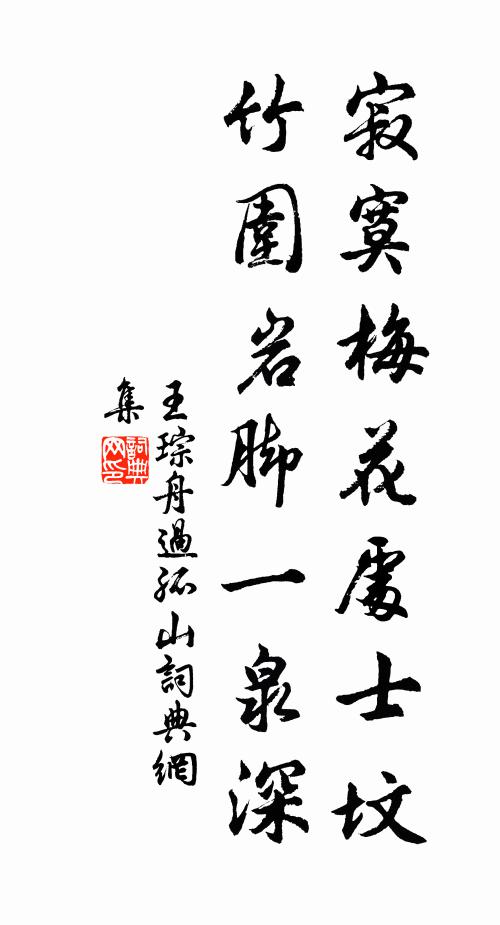 寂寞梅花處士墳
竹圍岩脚一泉深
王琮舟過孤山詞典網
集
詞典網印